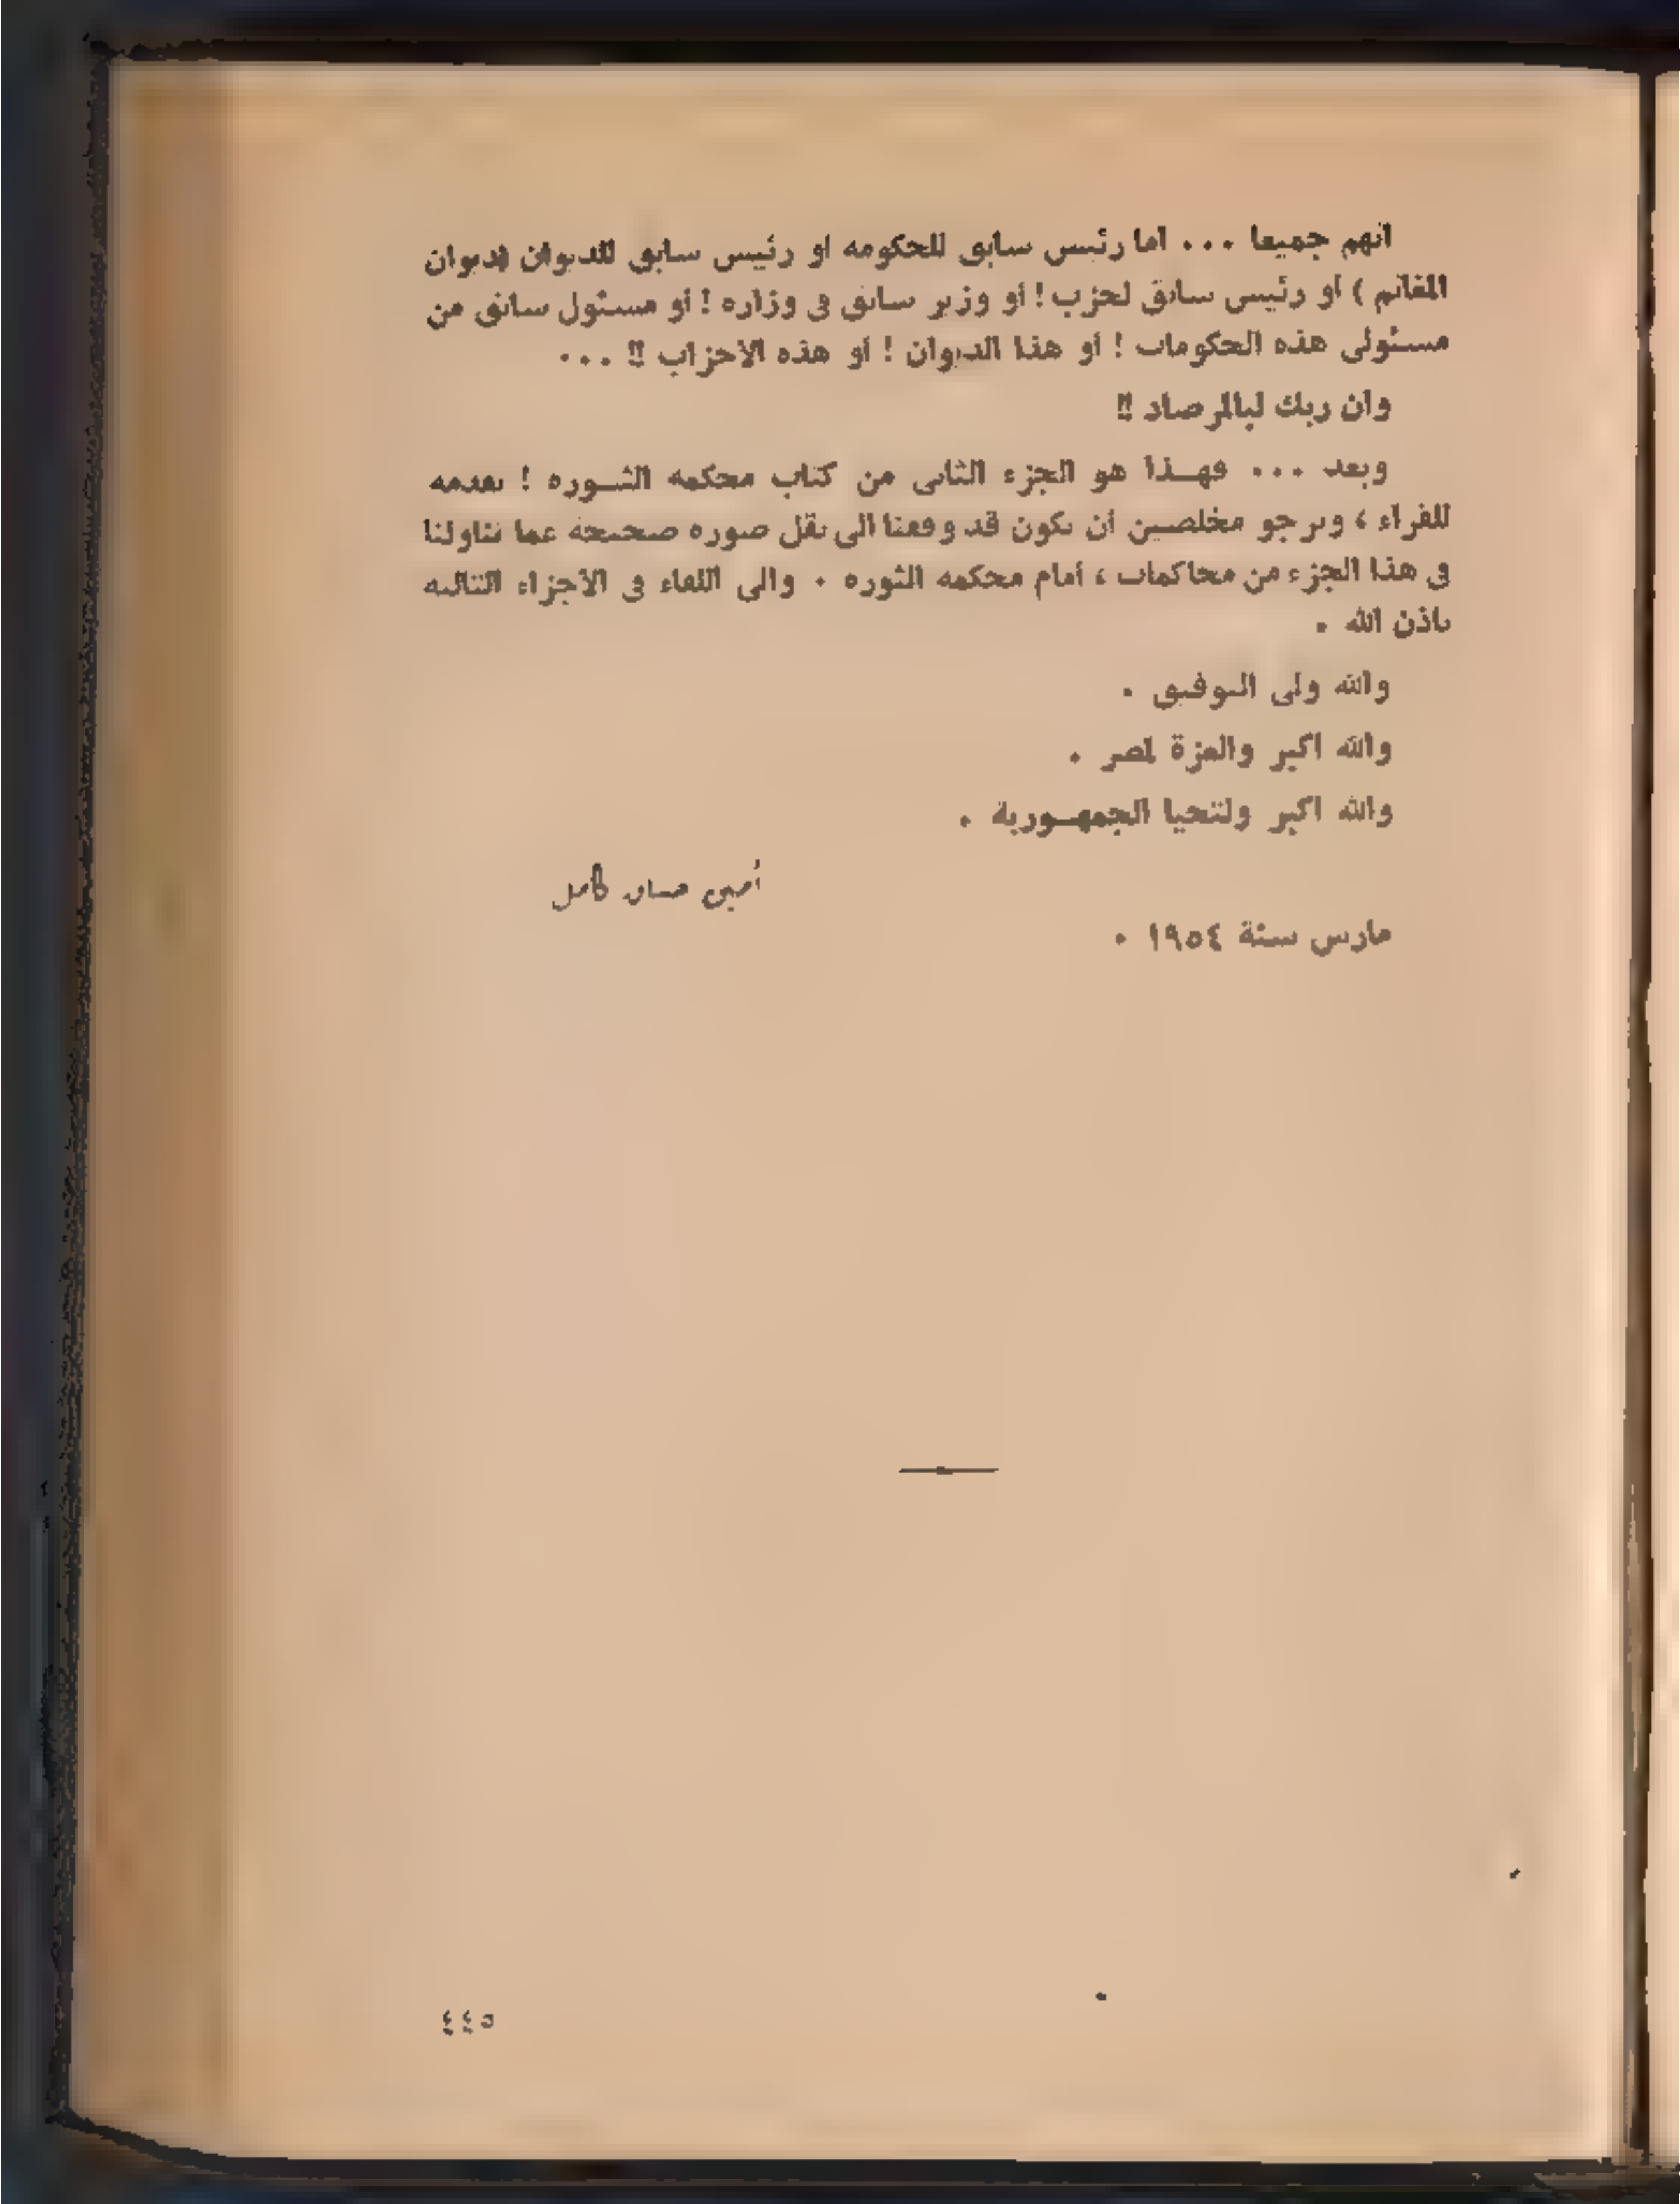 انهم جميعا ... اما رئيس سابق للحكومة او رئيس سابق للديوان (ديوان
المغانم ) أو رئيس سابق لحزب ! أو وزير سابق في وزارة ! أو مسئول سابق من
مسئولى هذه الحكومات ! أو هذا الديوان ! أو هذه الاحزاب !! ...
وان ربك لبالمرصاد !!
وبعد ... فهـذا هو الجزء الثانى من كتاب محكمة الثـورة ! نقدمه
للقراء ، ونرجو مخلصين أن نكون قد وفقنا الى نقل صورة صحيحة عما تناولنا
في هذا الجزء من محاكمات ، أمام محكمة الثورة . والى اللقاء في الأجزاء التالية
باذن الله .
والله ولى التوفيق .
والله اكبر والعزة لمصر .
والله اكبر ولتحيا الجمهـورية .
أمين حسان كامل
مارس سنة ١٩٥٤ .
٤٤٥